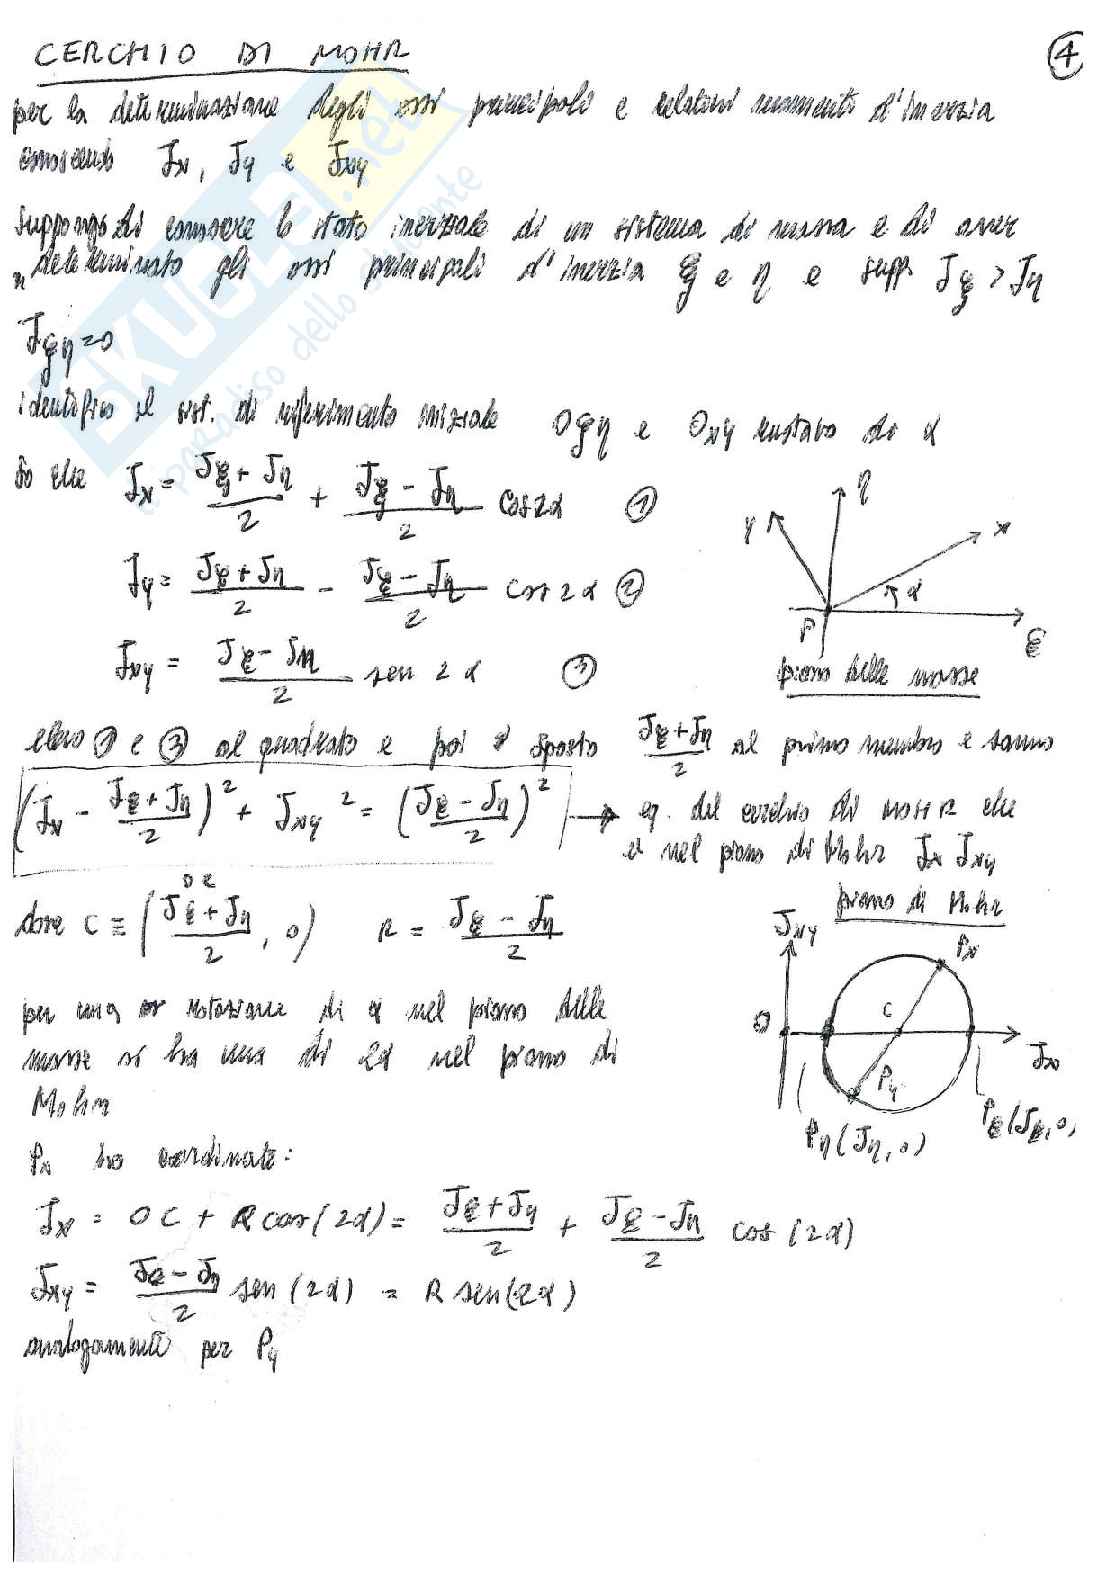 CERCHIO DI MOHR
4
per la determinazione degli assi principali e relativi momenti d'inerzia
conoscendo Jx, Jy e Jxy
Suppongo di conoscere lo stato inerziale di un sistema di massa e di aver
determinato gli assi principali d'inerzia ξ e η e supp Jξ > Jη
Jξη = 0
identifico il sist. di riferimento iniziale Oξη e Oxy ruotato di α
So che Jx = (Jξ + Jη)/2 + (Jξ - Jη)/2 cos2α ①
Jy = (Jξ + Jη)/2 - (Jξ - Jη)/2 cos 2α ②
Jxy = (Jξ - Jη)/2 sen 2α ③
y η x
α
P ξ
piano delle masse
elevo ① e ③ al quadrato e poi sposto (Jξ + Jη)/2 al primo membro e sommo
(Jx - (Jξ + Jη)/2)² + Jxy² = ((Jξ - Jη)/2)² → eq. del cerchio di MOHR che
è nel piano di Mohr Jx Jxy
dove C ≡ ((Jξ + Jη)/2, 0) R = (Jξ - Jη)/2
OC
piano di Mohr
Jxy Px
O C Jx
Py
Pη(Jη, 0) Pξ(Jξ, 0)
per una rotazione di α nel piano delle
masse si ha una di 2α nel piano di
Mohr
Px ha coordinate:
Jx = OC + R cos(2α) = (Jξ + Jη)/2 + (Jξ - Jη)/2 cos (2α)
Jxy = (Jξ - Jη)/2 sen (2α) = R sen(2α)
analogamente per Py
SKUOLA.net
paradiso dello studente